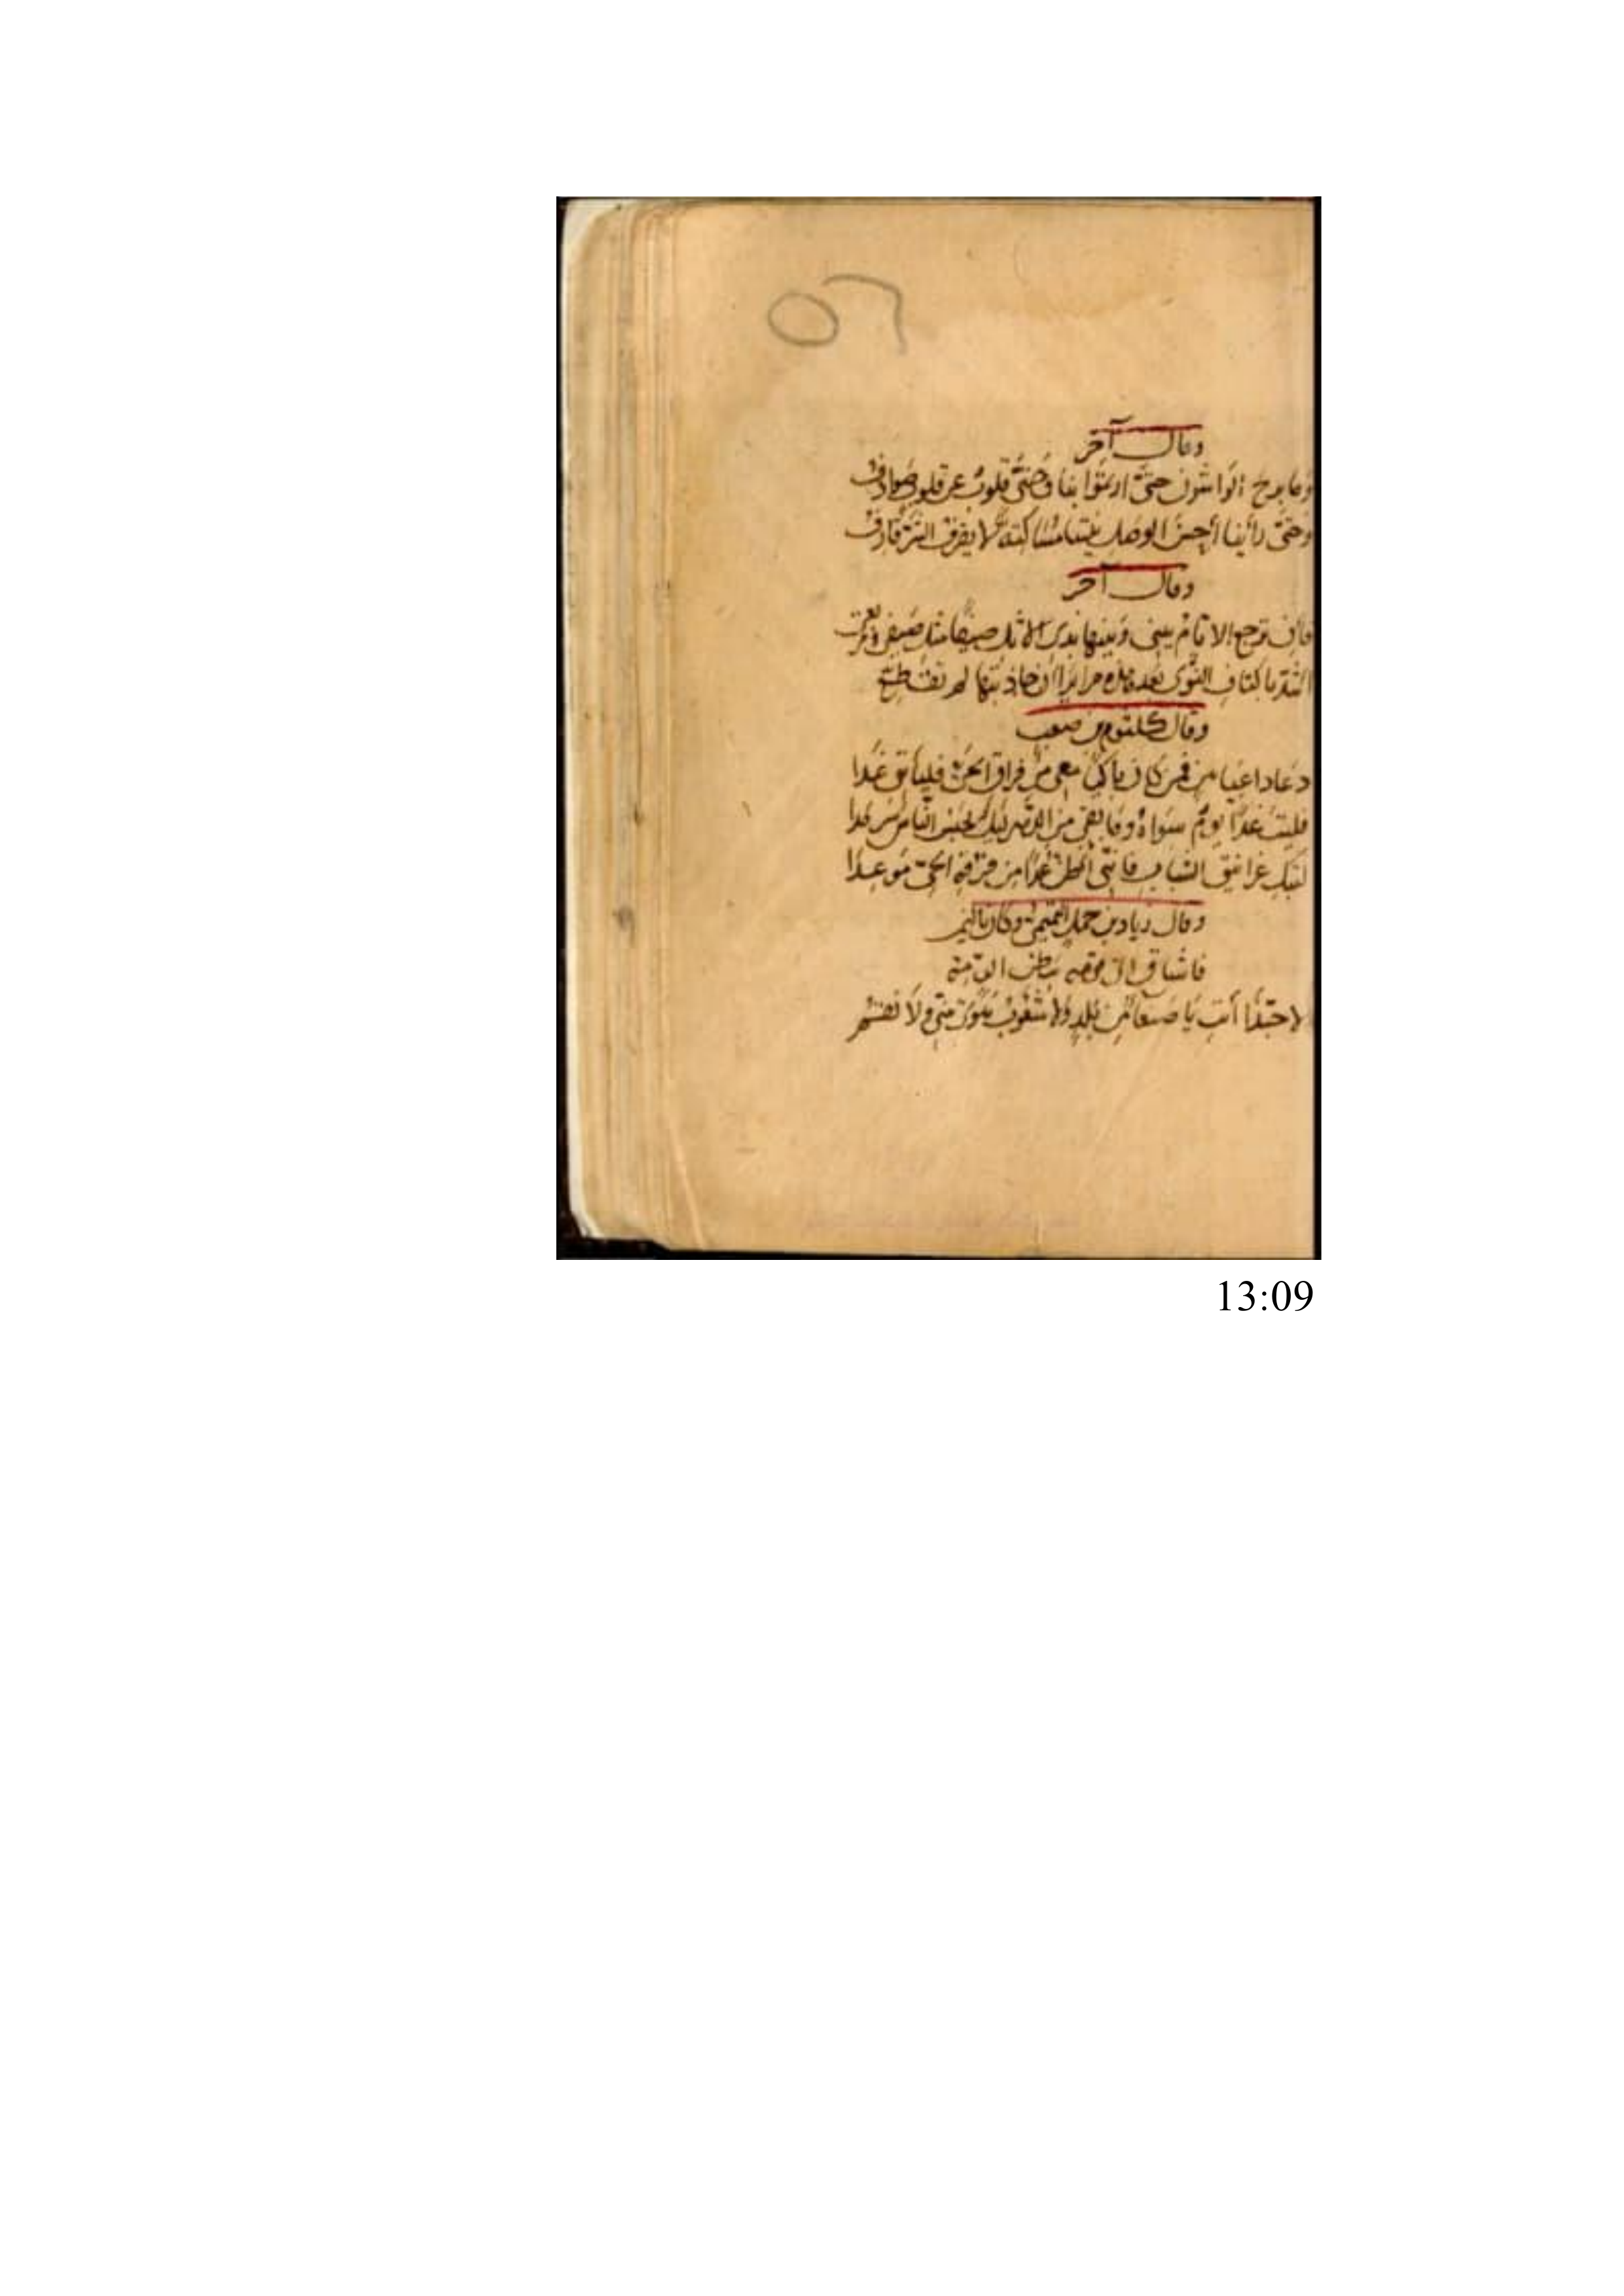 ٥٦
وقال آخر
وما برح الواشون حتى ارتموا بنا وحتى قلوب عن قلوب صوادف
وحتى رأينا أحسن الوصل بيننا مساكتة لا يقرف الشر قارف
وقال آخر
فإن ترجع الايام بيني وبينها بذي الاثل صيفا مثل صيفي ومربعي
اشد باكناف النوى بعد هذه مرائرا ان جاذبتها لم تقطع
وقال كلثوم بن صعب
دعا داعيا بين فمن كان باكيا معي من فراق الحي فليأتني غدا
فليت غدا يوم سواه وما بقي من الدهر ليل يحبس الناس سرمدا
لتبك غرانيق الشباب فانني إخال غدا من فرقة الحي موعدا
وقال زياد بن حمل التميمي وكان باليمن
فاشتاق الى وطنه ببطن الرمة
لا حبذا أنت يا صنعاء من بلد ولا شعوب هوى مني ولا نقم
13:09